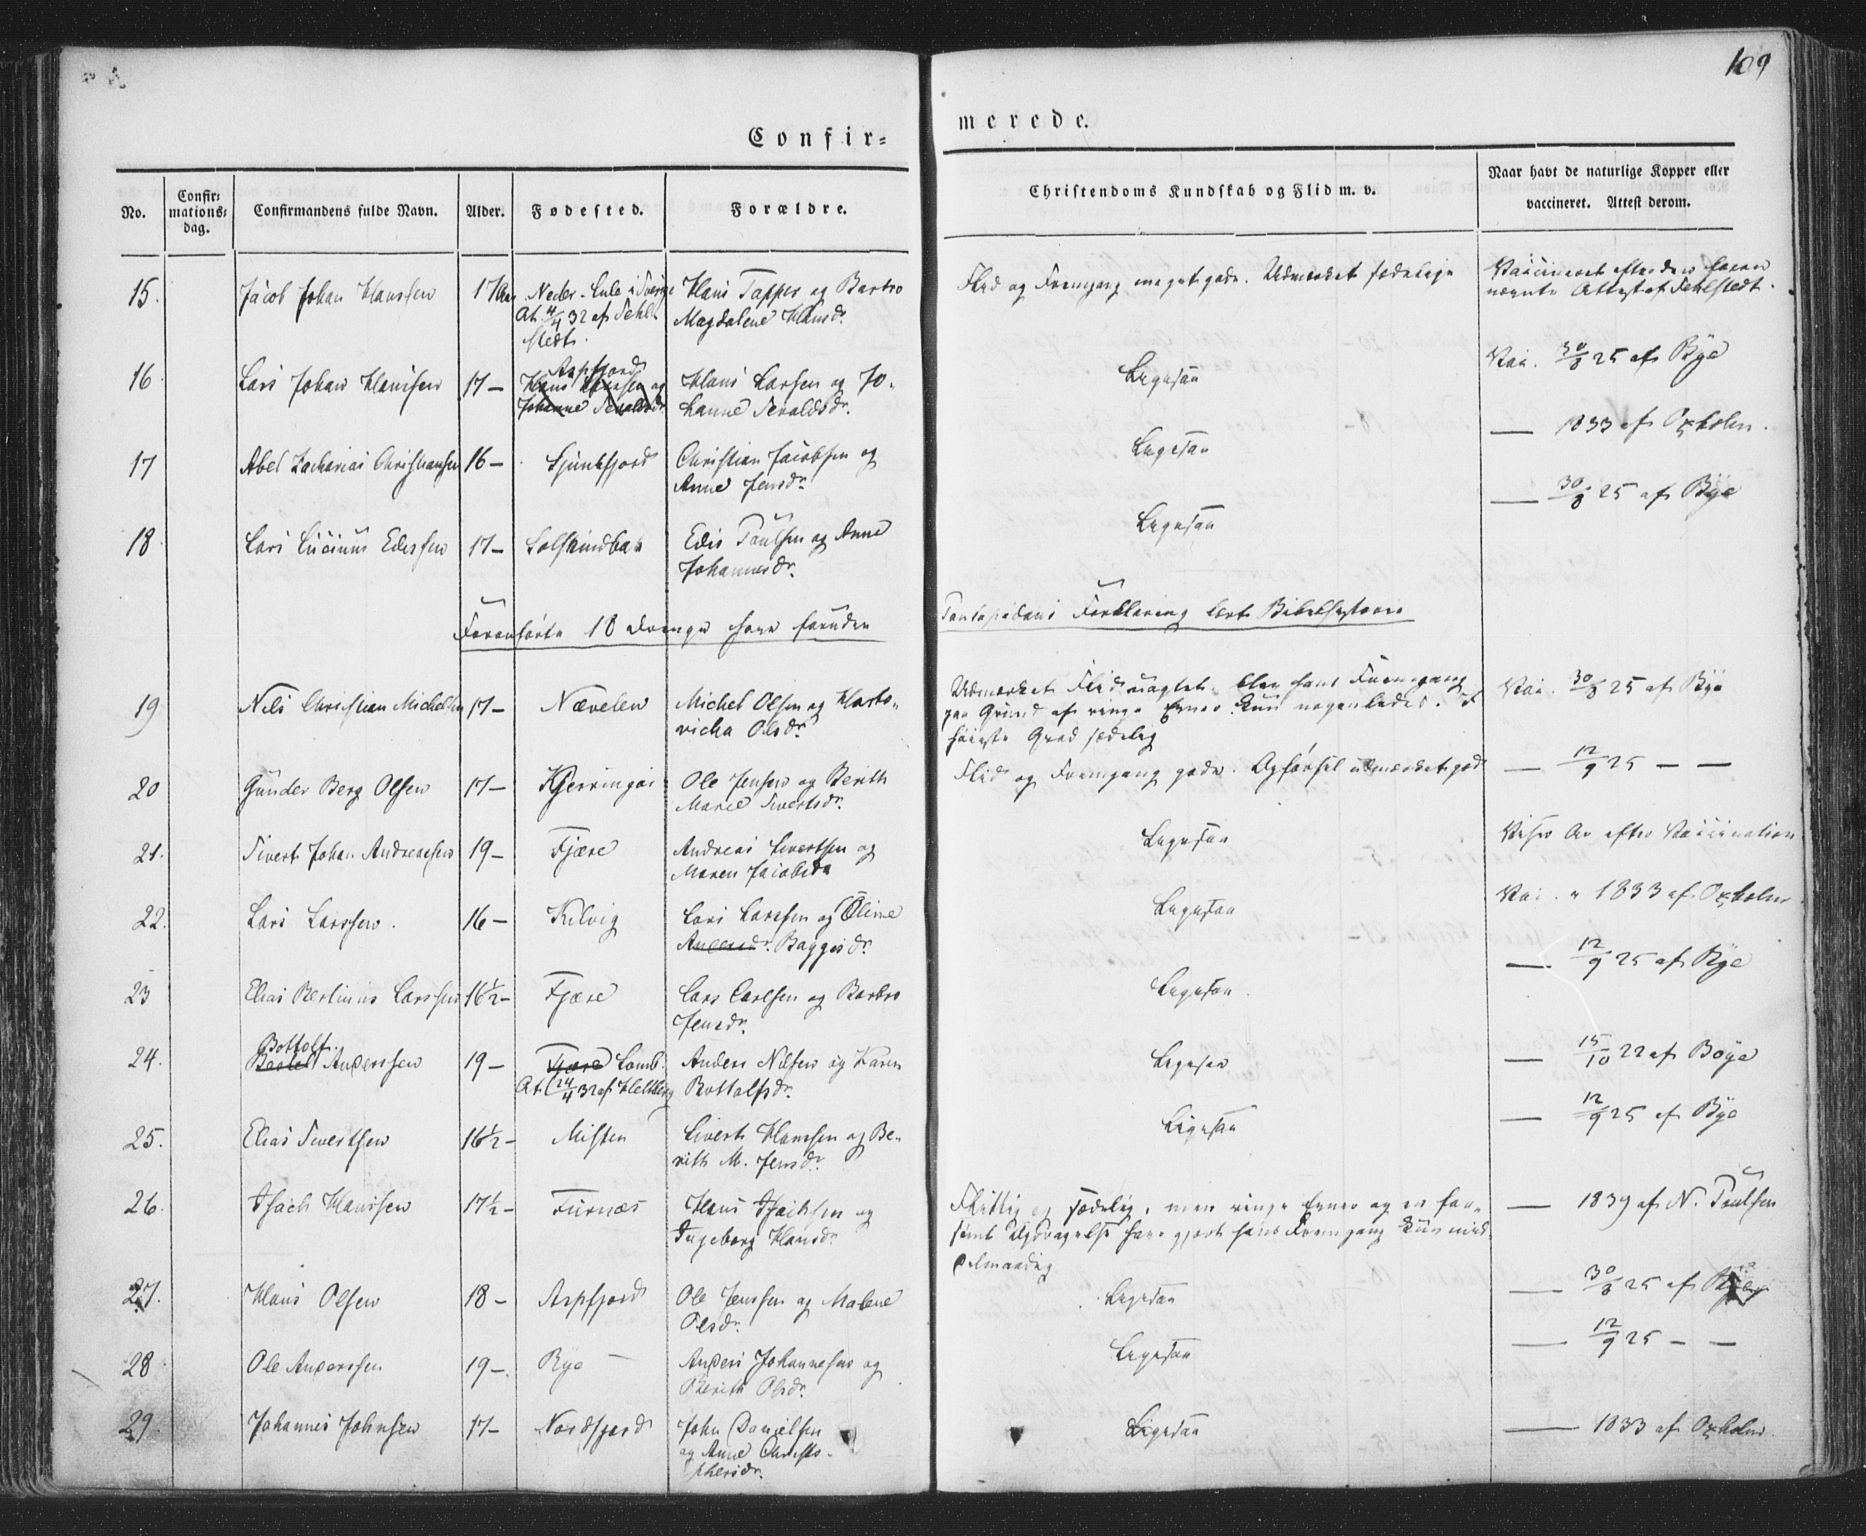 109
Confir=
merede.
No.
Confir=
mations=
dag.
Confirmandens fulde Navn.
Alder.
Fødested.
Forældre.
Christendoms Kundskab og Flid m. v.
Naar havt de naturlige Kopper eller
vaccineret. Attest derom.
15.
Jacob Johan Hanssen
17 Aar
Neder-Lule i Sverige
At. 4/4 32 af Fehl-
stedt.
Hans Tapper og Barbro
Magdalene Hansdr.
Flid og Fremgang meget gode. Udmærket sædelig
Vaccineret efter den foran
nævnte Attest af Fehlstedt.
16
Lars Johan Hanssen
17 –
Aspfjord
Hans Larssen og
Johanne Sevaldsdr.
Hans Larsen og Jo-
hanne Sevaldsdr.
Ligesaa
Vac. 30/8 25 af Bye
17
Abel Zacharias Christiansen
16 –
Sjunkfjord
Christian Jacobsen og
Anne Jensdr.
Ligesaa
— 1833 af Oxholm.
18
Lars Lucinus Edissen
17 –
Solskindbak
Edis Poulsen og Anne
Johannesdr.
Ligesaa
— 30/8 25 af Bye
Foranførte 18 Drenge have foruden
Pontopidans Forklaring lært Bibelhistorie
19
Nils Christian Michelsen
17 –
Nævelen
Michel Olsen og Hart-
vicka Olsdr.
Udmærket Flid uagtet blev hans Fremgang
paa Grund af ringe Evner kun nogenledes. I
høieste Grad sædelig
Vac. 30/8 25 af Bye
20
Gunder Berg Olsen
17 –
Kjerringøi
Ole Jensen og Berith
Marie Sivertsdr.
Flid og Fremgang gode. Opførsel udmærket god
— 12/9 25 — —
21.
Sivert Johan Andreassen
19 –
Fjære
Andreas Sivertsen og
Maren Jacobsdr
Ligesaa
Viser Ar efter Vaccination
22.
Lars Larssen.
16 –
Kilvig
Lars Larssen og Oline
Andersdr. Baggesdr.
Ligesaa
Vac. " 1833 af Oxholm
23
Elias Bertinus Larssen
16½ –
Fjære
Lars Carlsen og Barbro
Jensdr.
Ligesaa.
— 12/9 25 af Bye
24.
Bottolf
Andersen
19 –
Fjære Lomb.
At. 24/4 32 af Heltberg
Anders Nilsen og Karen
Bottolfsdr.
Ligesaa
— 15/10 22 af Boye
25.
Elias Sivertsen
16½ –
Misten
Sivert Hanssen og Be-
rith M. Jensdr.
Ligesaa
— 12/9 25 af Bye
26.
Isach Hanssen
17½ –
Furnæs
Hans Isachsen og
Ingeborg Hansdr.
Flittig og sædelig, men ringe Evner og en for-
sømt Opdragelse have gjort hans Fremgang kun mid-
delmaadig
— 1839 af N. Poulsen
27.
Hans Olsen
18 –
Aspfjord
Ole Jenssen og Malene
Olsdr.
Ligesaa
— 30/8 25 af Bye
28
Ole Anderssen
19 –.
Bye —
Anders Johannesen og
Berith Olsdr.
Ligesaa
— 12/9 25 — —
29.
Johannes Johnsen
17 –
Nordfjord
John Danielsen
og Anne Christo-
phersdr.
Ligesaa
— 1833 af Oxholm.